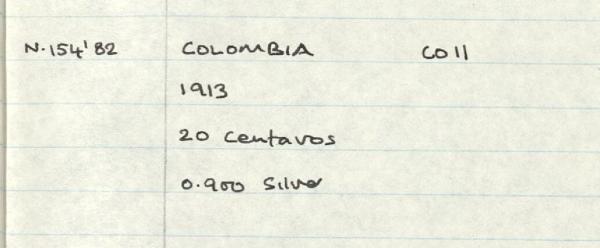 N.154'82 COLOMBIA CO11
1913
20 Centavos
0.900 Silver